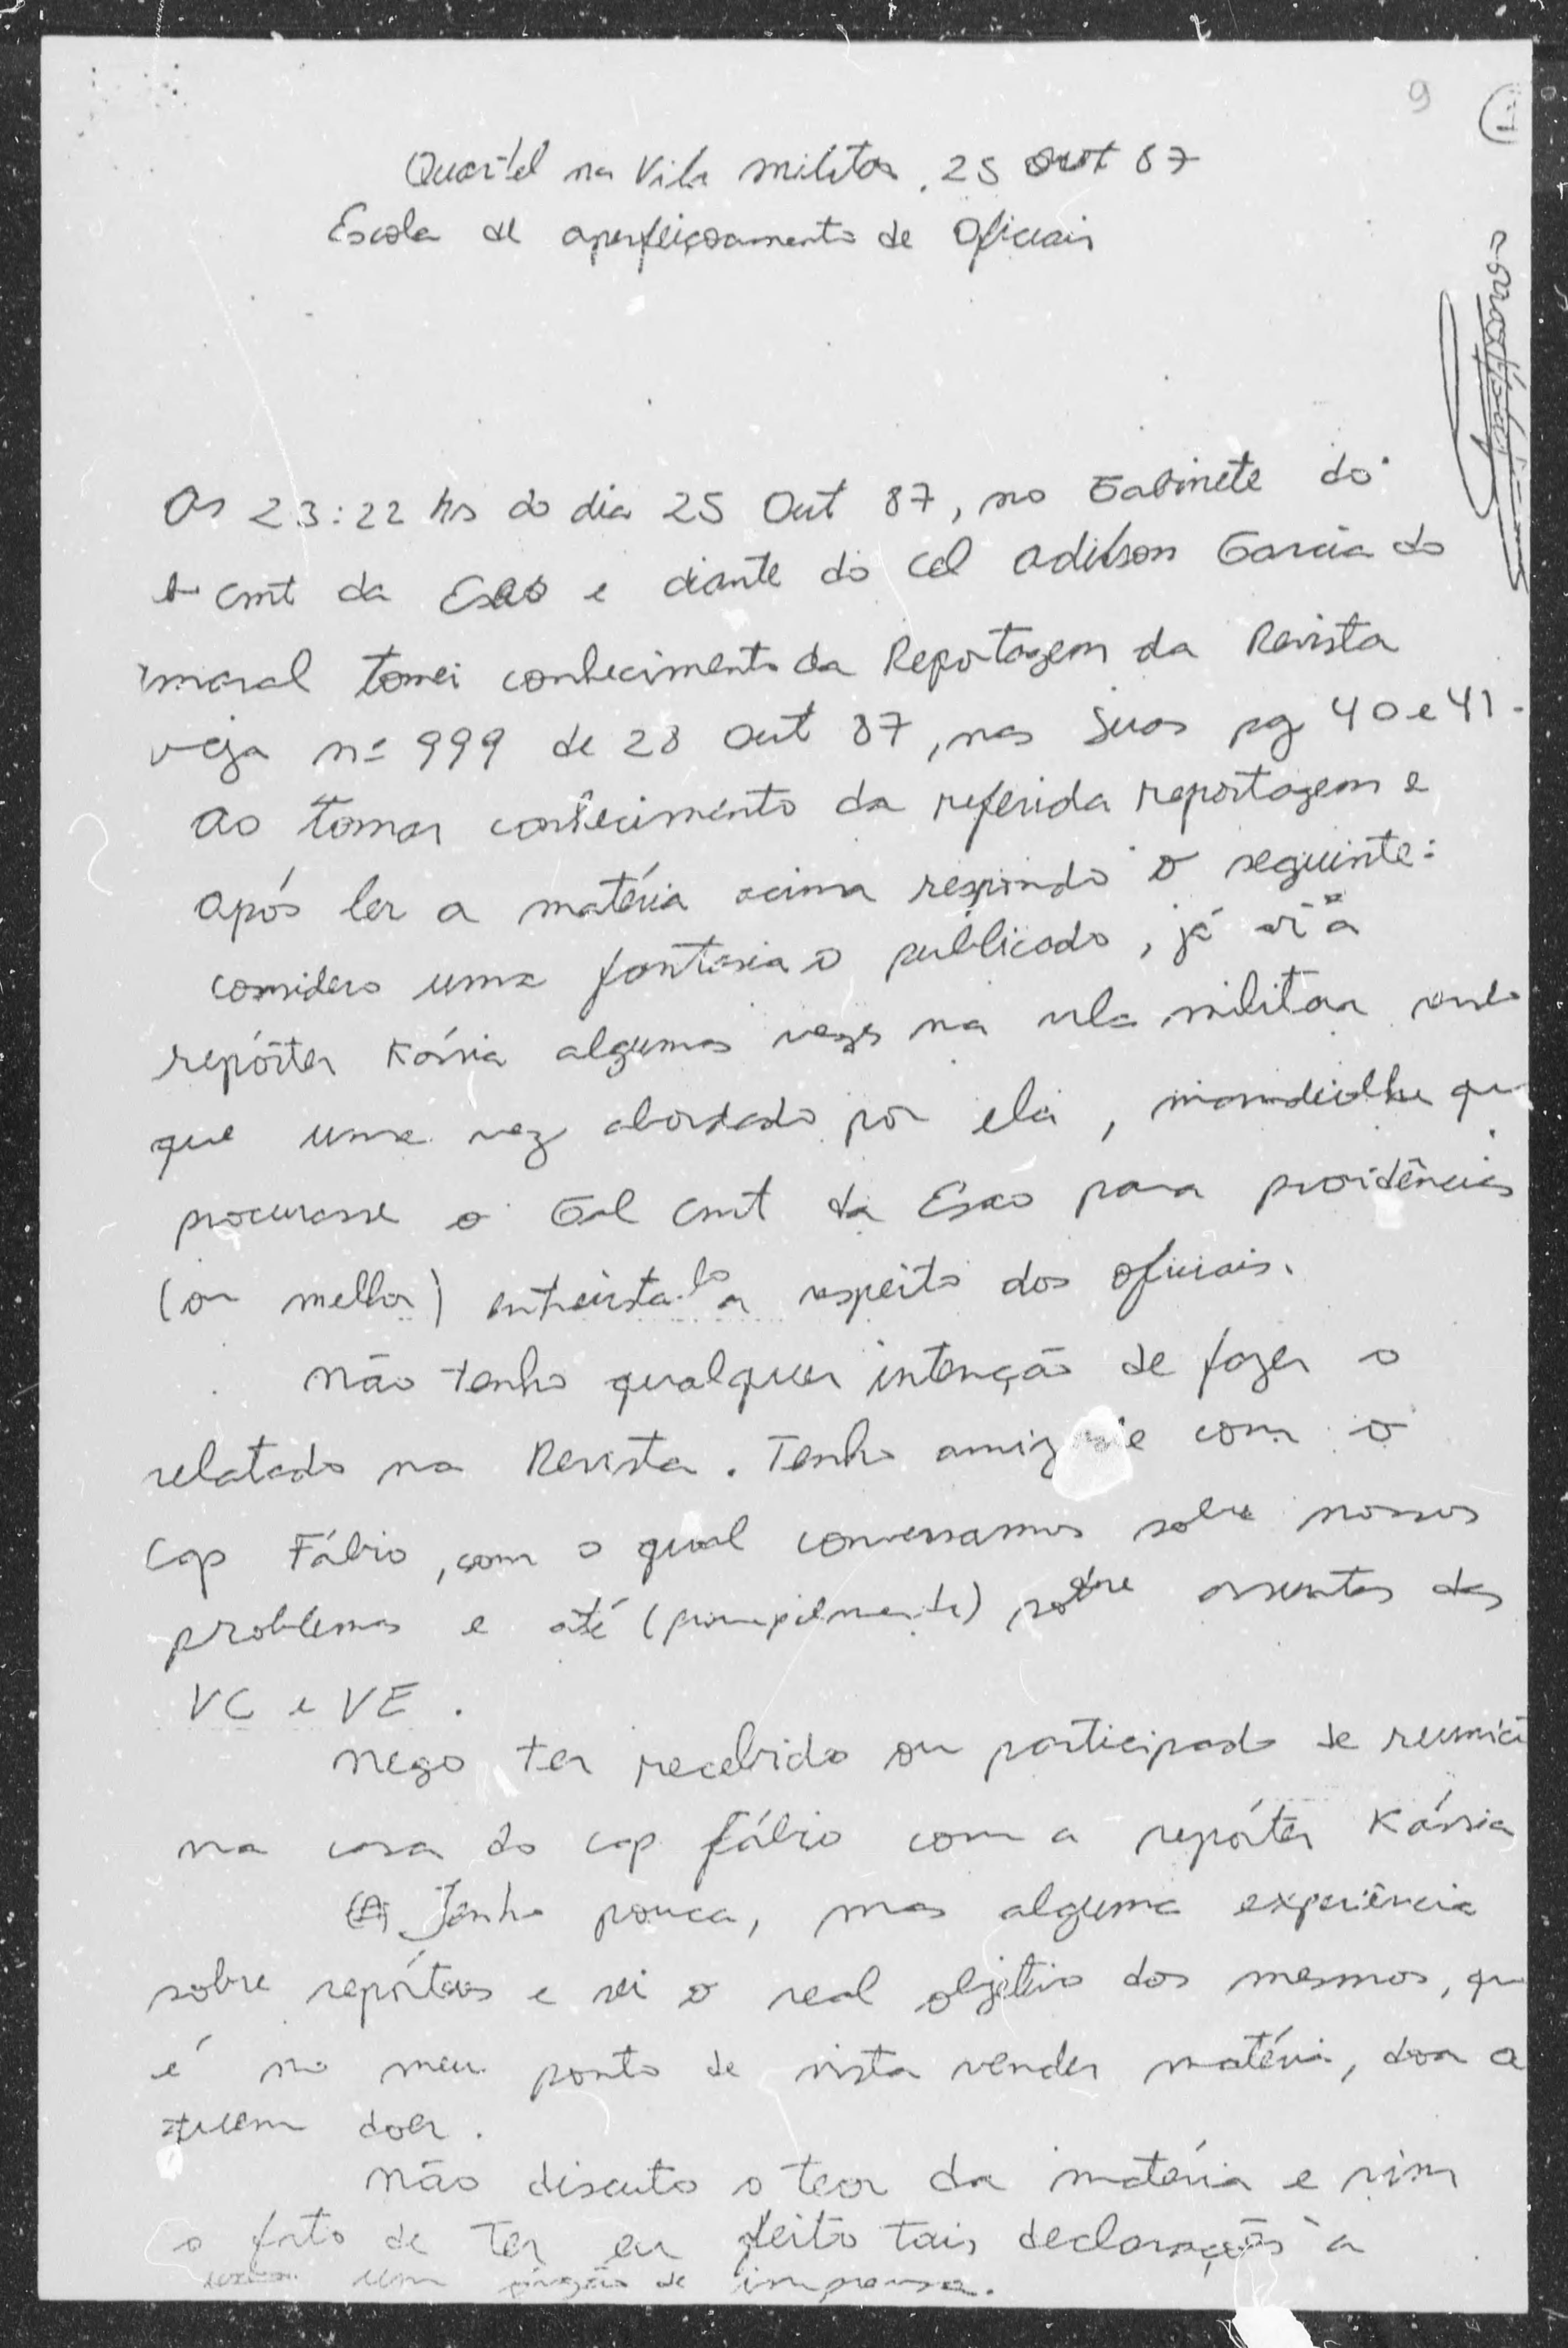 9
1
Quartel na Vila militar, 25 out 87
Escola de aperfeiçoamento de Oficiais
As 23:22 hs do dia 25 Out 87, no Gabinete do
Cmt da EsAO e diante do Cel Adilson Garcia do
Amaral tomei conhecimento da Reportagem da Revista
veja nº 999 de 28 Out 87, nas suas pg 40 e 41.
Ao tomar conhecimento da referida reportagem e
após ler a matéria acima respondo o seguinte:
considero uma fantasia o publicado, já vi a
repórter Kássia algumas vezes na vila militar sendo
que uma vez abordado por ela, mandei-lhe que
procurasse o Gal Cmt da EsAO para providências
(ou melhor) entrevista-lo a respeito dos oficiais.
não tenho qualquer intenção de fazer o
relatado na Revista. Tenho amizade com o
Cap Fábio, com o qual conversamos sobre nossos
problemas e até (principalmente) sobre assuntos das
VC e VE.
nego ter recebido ou participado de reunião
na casa do cap Fábio com a repórter Kássia
Tenho pouca, mas alguma experiência
sobre repórteres e sei o real objetivo dos mesmos, que
é no meu ponto de vista vender matéria, doa a
quem doer.
não discuto o teor da matéria e sim
o fato de ter eu feito tais declarações a
um órgão de imprensa.